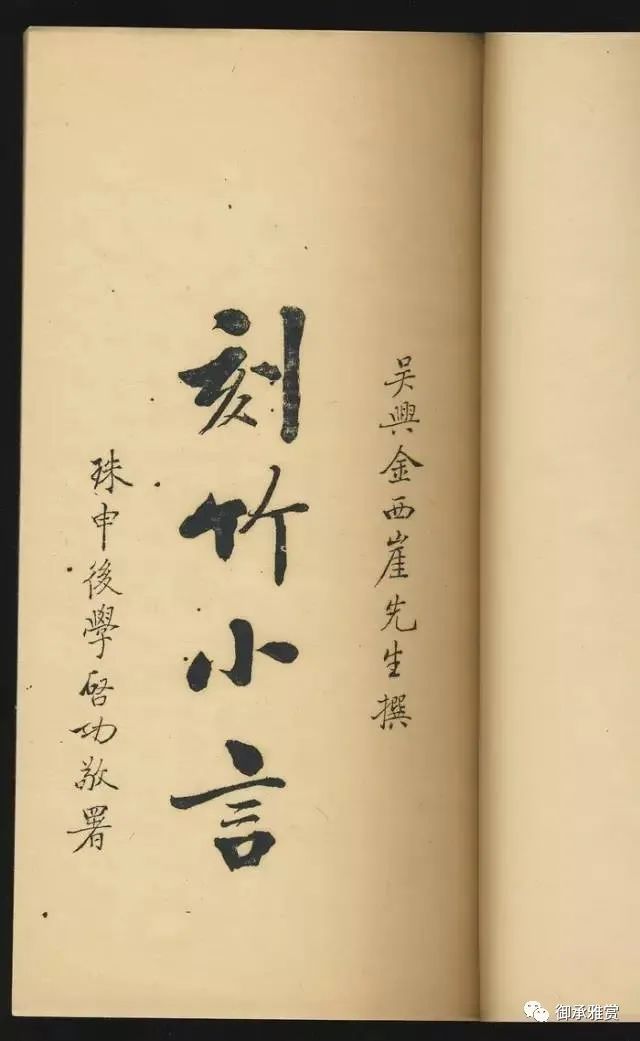 吴興金西崖先生撰
刻竹小言
珠申後學啓功敬署
御承雅赏